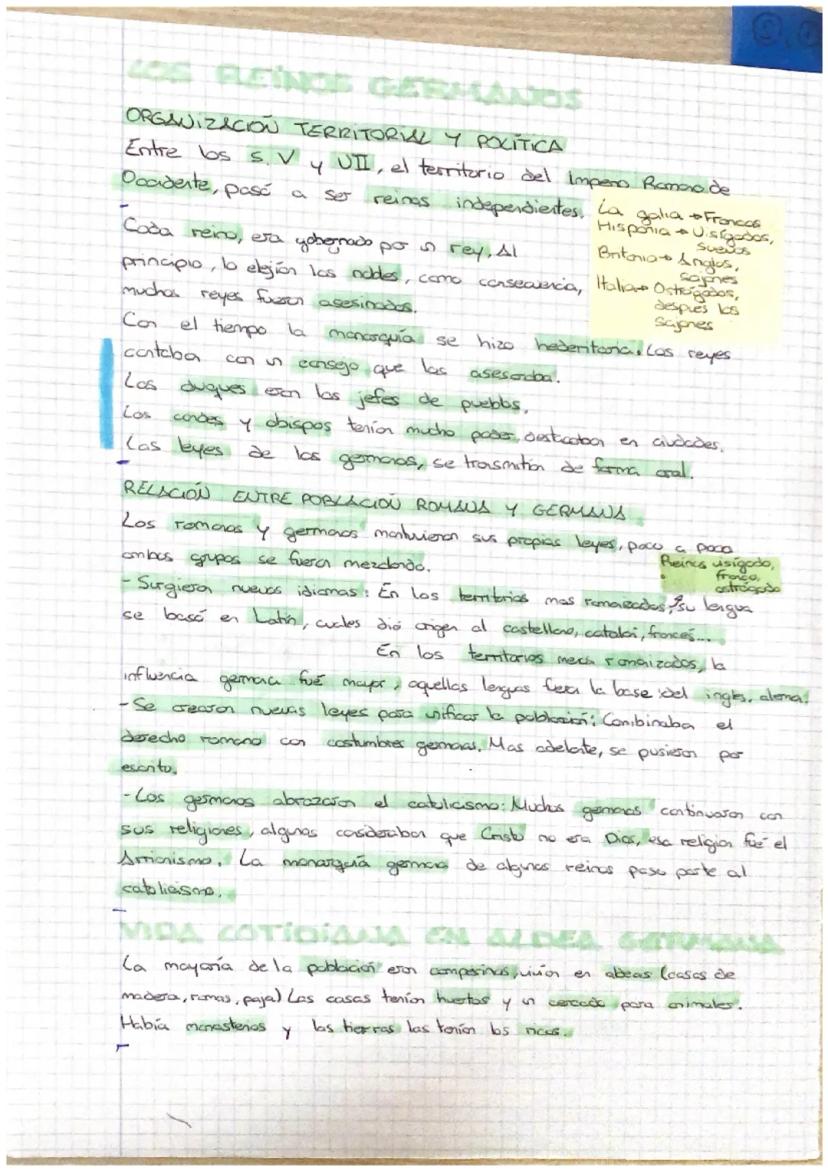 LOS REINOS GERMANOS
ORGANIZACIÓN TERRITORIAL Y POLÍTICA
Entre los s. V y VII, el territorio del Imperio Romano de
Occidente, pasó a ser reinos independientes.
La galia → Francos
Hispania → Visigodos,
Suevos
Britania → Anglos,
sajones
Italia → Ostrogodos,
después los
sajones
Cada reino, era gobernado por un rey, Al
principio, lo elegían los nobles, como consecuencia,
muchos reyes fueron asesinados.
Con el tiempo la monarquía se hizo hederitaria. Los reyes
contaban con un consejo que los asesoraba.
Los duques eran los jefes de pueblos.
Los condes y obispos tenían mucho poder, destacaban en ciudades.
Las leyes de los germanos, se trasmitían de forma oral.
RELACIÓN ENTRE POBLACIÓN ROMANA Y GERMANA
Los romanos y germanos mantuvieron sus propias leyes, poco a poco
ambos grupos se fueron mezclando.
Reinos visigodo,
franco,
ostrogodo
- Surgieron nuevos idiomas: En los territorios mas romanizados, su lengua
se basó en Latín, cuales dió origen al castellano, catalán, francés...
En los territorios menos romanizados, la
influencia germana fué mayor, aquellas lenguas fueron la base del ingles, aleman.
- Se crearon nuevas leyes para unificar la población: Combinaban el
derecho romano con costumbres germanas. Mas adelante, se pusieron por
escrito.
- Los germanos abrazaron el catolicismo: Muchos germanos continuaron con
sus religiones, algunos consideraban que Cristo no era Dios, esa religión fué el
Arrianismo. La monarquía germana de algunos reinos paso parte al
catolicismo.
VIDA COTIDIANA EN ALDEA GERMANA
La mayoría de la población eran campesinos, vivían en aldeas (casas de
madera, ramas, paja) Las casas tenían huertos y un cercado para animales.
Había monasterios y las tierras las tenían los ricos.